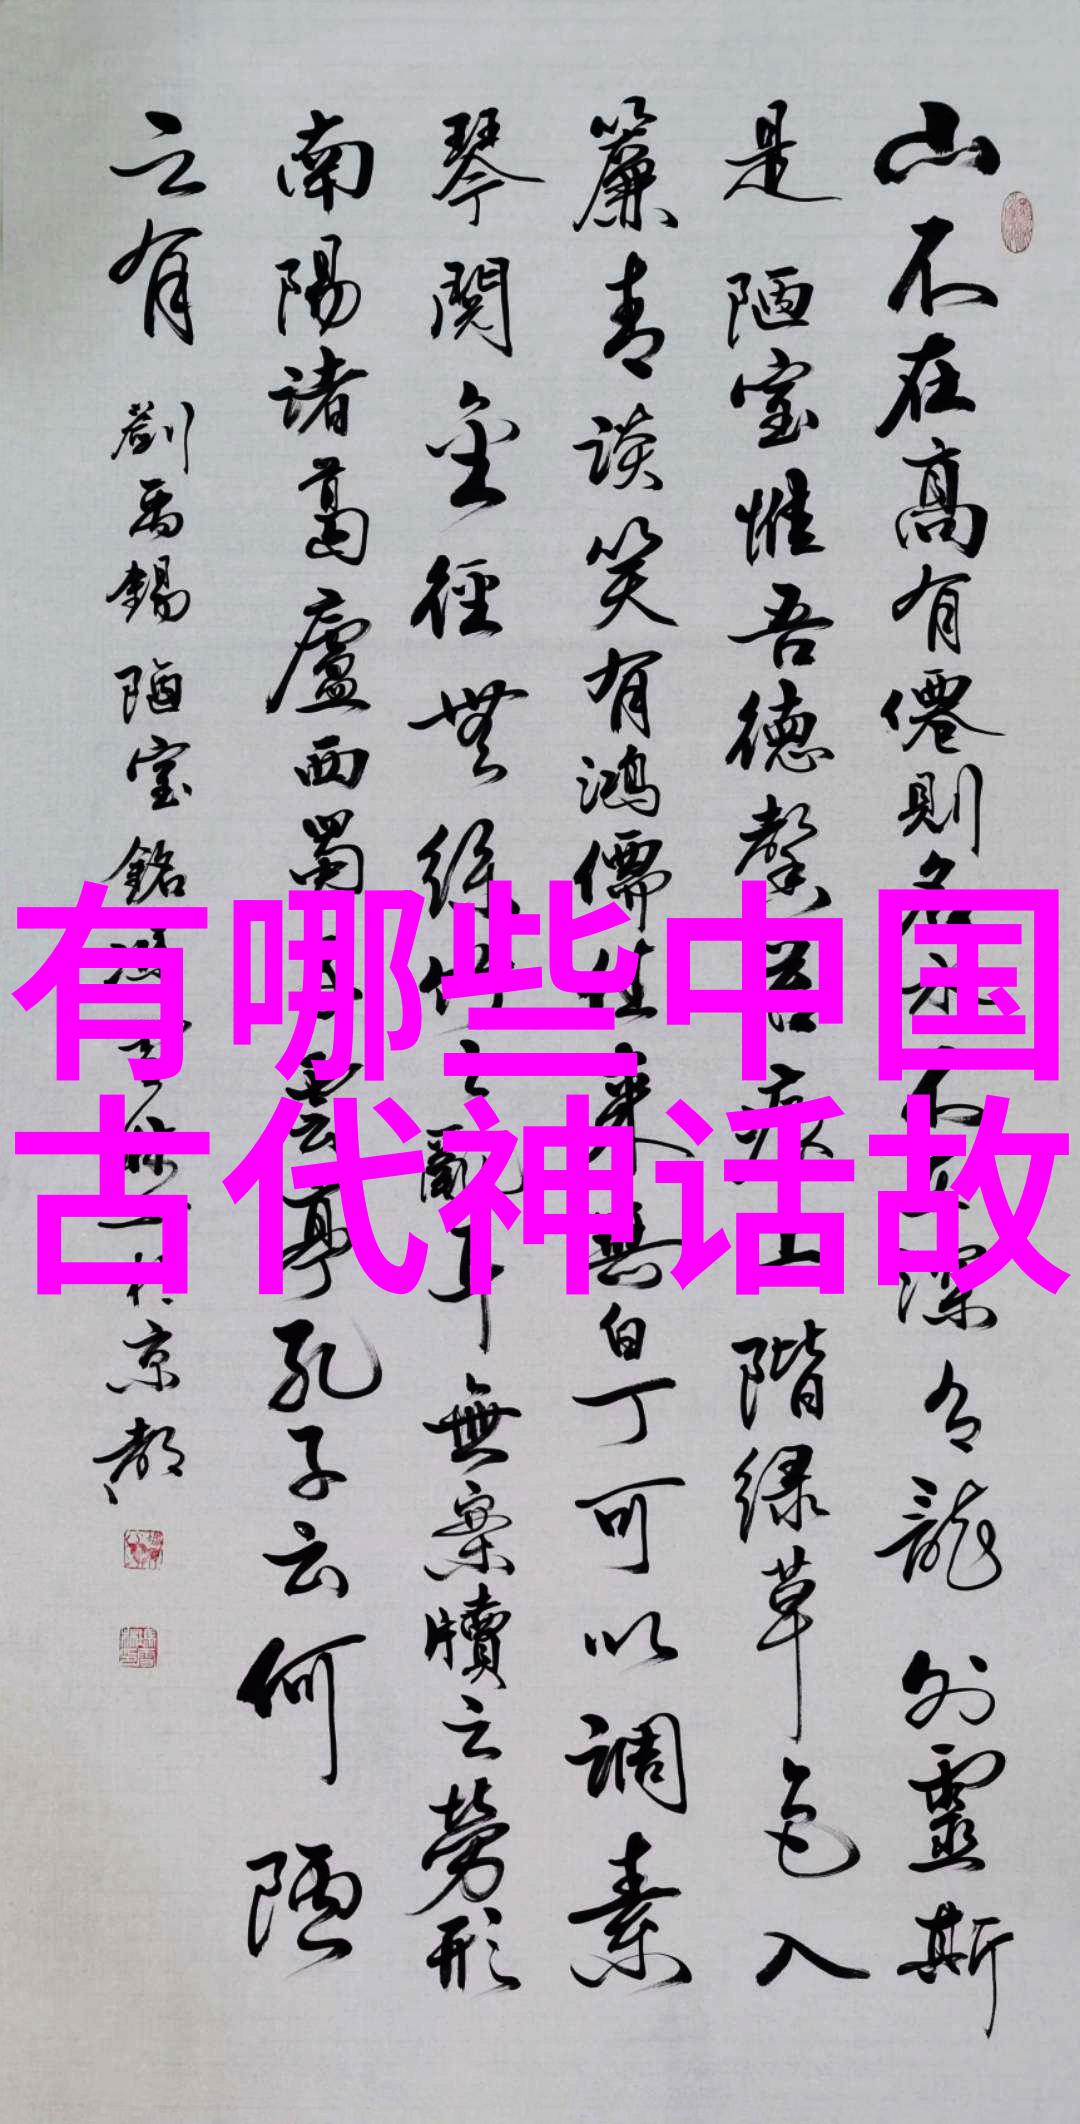 有哪些中国
古代神话故
山不在高有僊則名水不在深有龍則靈斯
是陋室惟吾德馨苔痕上階绿草色入
簾青談笑有鴻儒往来無白丁可以調素
琴閱金經無絲竹之亂耳無案牘之勞形
南陽诸葛廬西蜀子雲亭孔子云何陋
之有 劉禹錫陋室銘 於京都